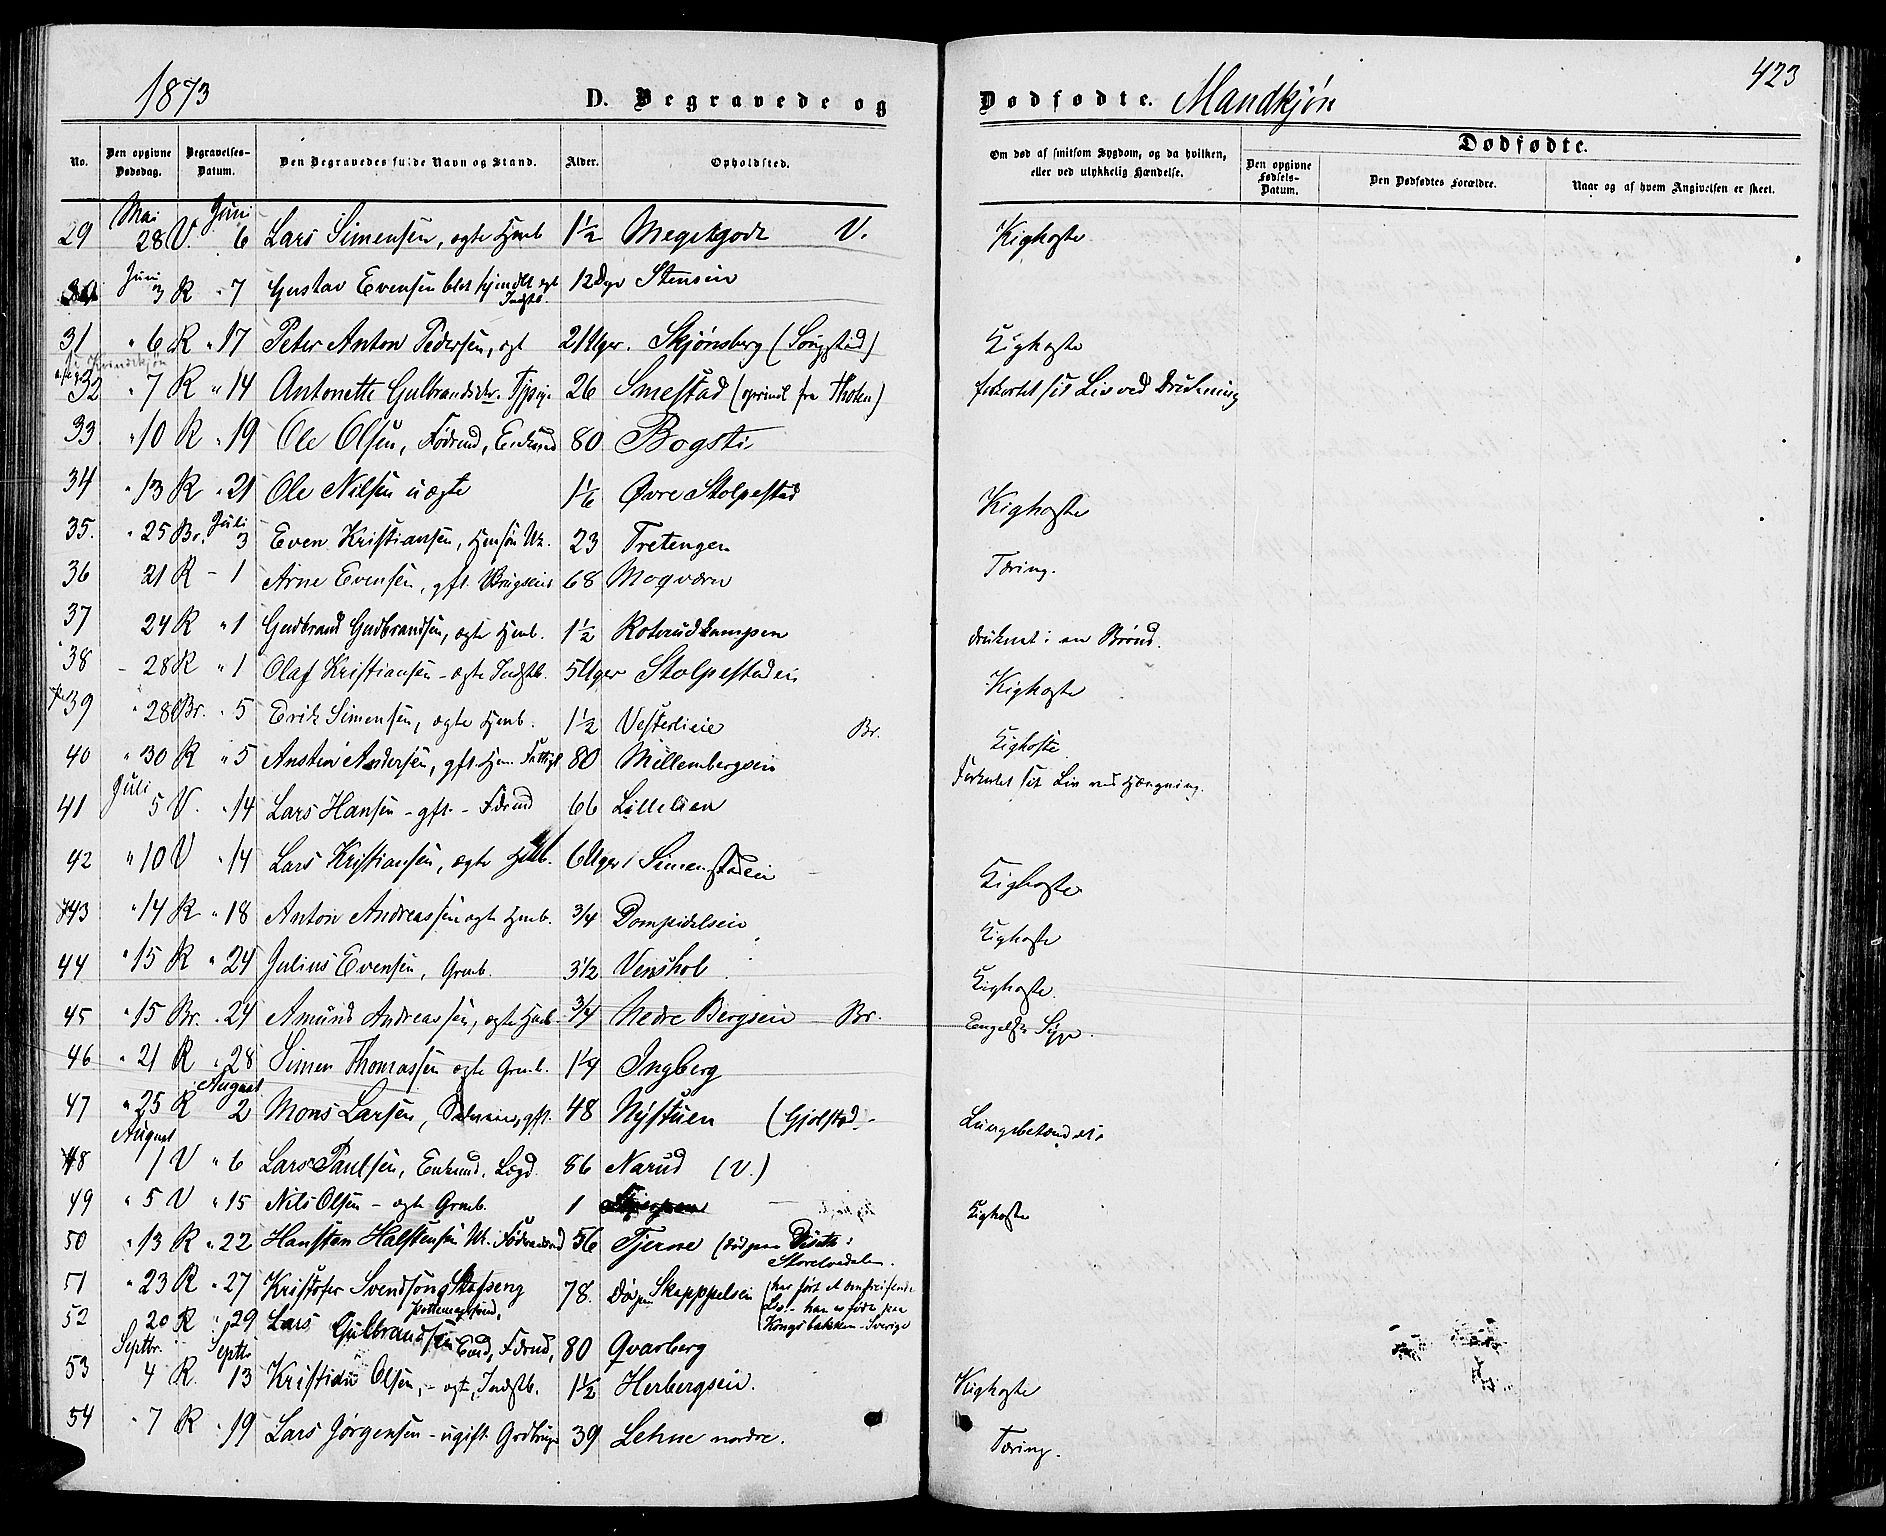 1873
D. Begravede og
Dødfødte. Mandkjøn
423
No.
Den opgivne Dødsdag.
Begravelses-Datum.
Den Begravedes fulde Navn og Stand.
Alder.
Opholdsted.
Om død af smitsom Sygdom, og da hvilken, eller ved ulykkelig Hændelse.
Dødfødte.
Den opgivne Fødsels-Datum.
Den Dødfødtes Forældre.
Naar og af hvem Angivelsen er skeet.
Mai Juni
29 28 V. 6 Lars Simensen, ægte Hmb 1½ V. Kighoste
Juni
3 R " 7 Gustav Evensen 12 Dge Stensein
31 " 6 R " 17 Peter Anton Pedersen, ægt 21 Uger. Skjønsberg (Songstad) Kighoste
32 " 7 R " 14 Antonette Gulbrandsdtr. 26 Smestad (oprindl fra Thoten) forkortet sit Liv ved Drukning
33 " 10 R " 19 Ole Olsen, Føderaad, Enkemd 80 Bogsti
34 " 13 R " 21 Ole Nilsen uægte 1⅙ Øvre Stolpestad Kighoste
Juli
35. " 25 Br. 3 Even Kristiansen, Hmsøn Uk. 23 Tretengen
36 21 R - 1 Arne Evensen, gft. 68 Moqværn Tæring.
37 24 R " 1 Gudbrand Gudbrandsen, ægte Hmb. 1½ Roterudkampen druknet i en Brønd.
38 - 28 R " 1 Olaf Kristiansen - ægte Indstb. 5 Uger Stolpestadei Kighoste
39 " 28 Br. " 5 Erik Simensen, ægte Hmb. 1½ Vesterlieie Br. Kighoste
40 " 30 R " 5 Ansten Andersen, gft. Hm. Fattigl 80 Millembergsei Forkortet sit Liv ved Hængning.
Juli
41 5 V. " 14 Lars Hansen - gft. - Førmd 66 Lillelien
42 " 10 V " 14 Lars Kristiansen, ægte Hmb. 6 Uger Simenstadei Kighoste
43 " 14 R " 18 Anton Andreassen ægte Hmb. 3/4 Dompidelseie Kighoste
44 " 15 R " 24 Julius Evensen, Grmb. 3½ Venshol Kighoste.
45 " 15 Br. " 24 Amund Andreassen, ægte Hmb 3/4 Nedre Bergseie Br. Engelsk Syge.
46 " 21 R " 28 Simen Thomassen ægte Grmb. 1¼ Ingberg
August
47 " 25 R 2 Mons Larsen, gft. 48 Nystuen (Gjølstad) Lungebetændelse
August
48 1 V " 6 Lars Paulsen, Enkemd. Lægd. 86 Narud (V.)
49 " 5 V " 15 Nils Olsen - ægte Grmb. 1 Kighoste
50 " 13 R " 22 Hansten Halstensen Uk. 56 Tjerne (død paa Diseth i Storelvedalen.
51 " 23 R " 27 Kristofer Svendsen Skafseng 78. Døde paa Skeppelsei (har ført et omreisende Liv - han er født paa Kongsbakken - Sverige
52 20 R " 29 Lars Gulbrandsen 80 Qvarberg
Septbr. Septbr
53 4 R. 13 Kristian Olsen, - ægte, Indstb. 1½ Herbergseie. Kighoste
54 " 7 R " 19 Lars Jørgensen - ugift 39 Lehne nordre. Tæring.